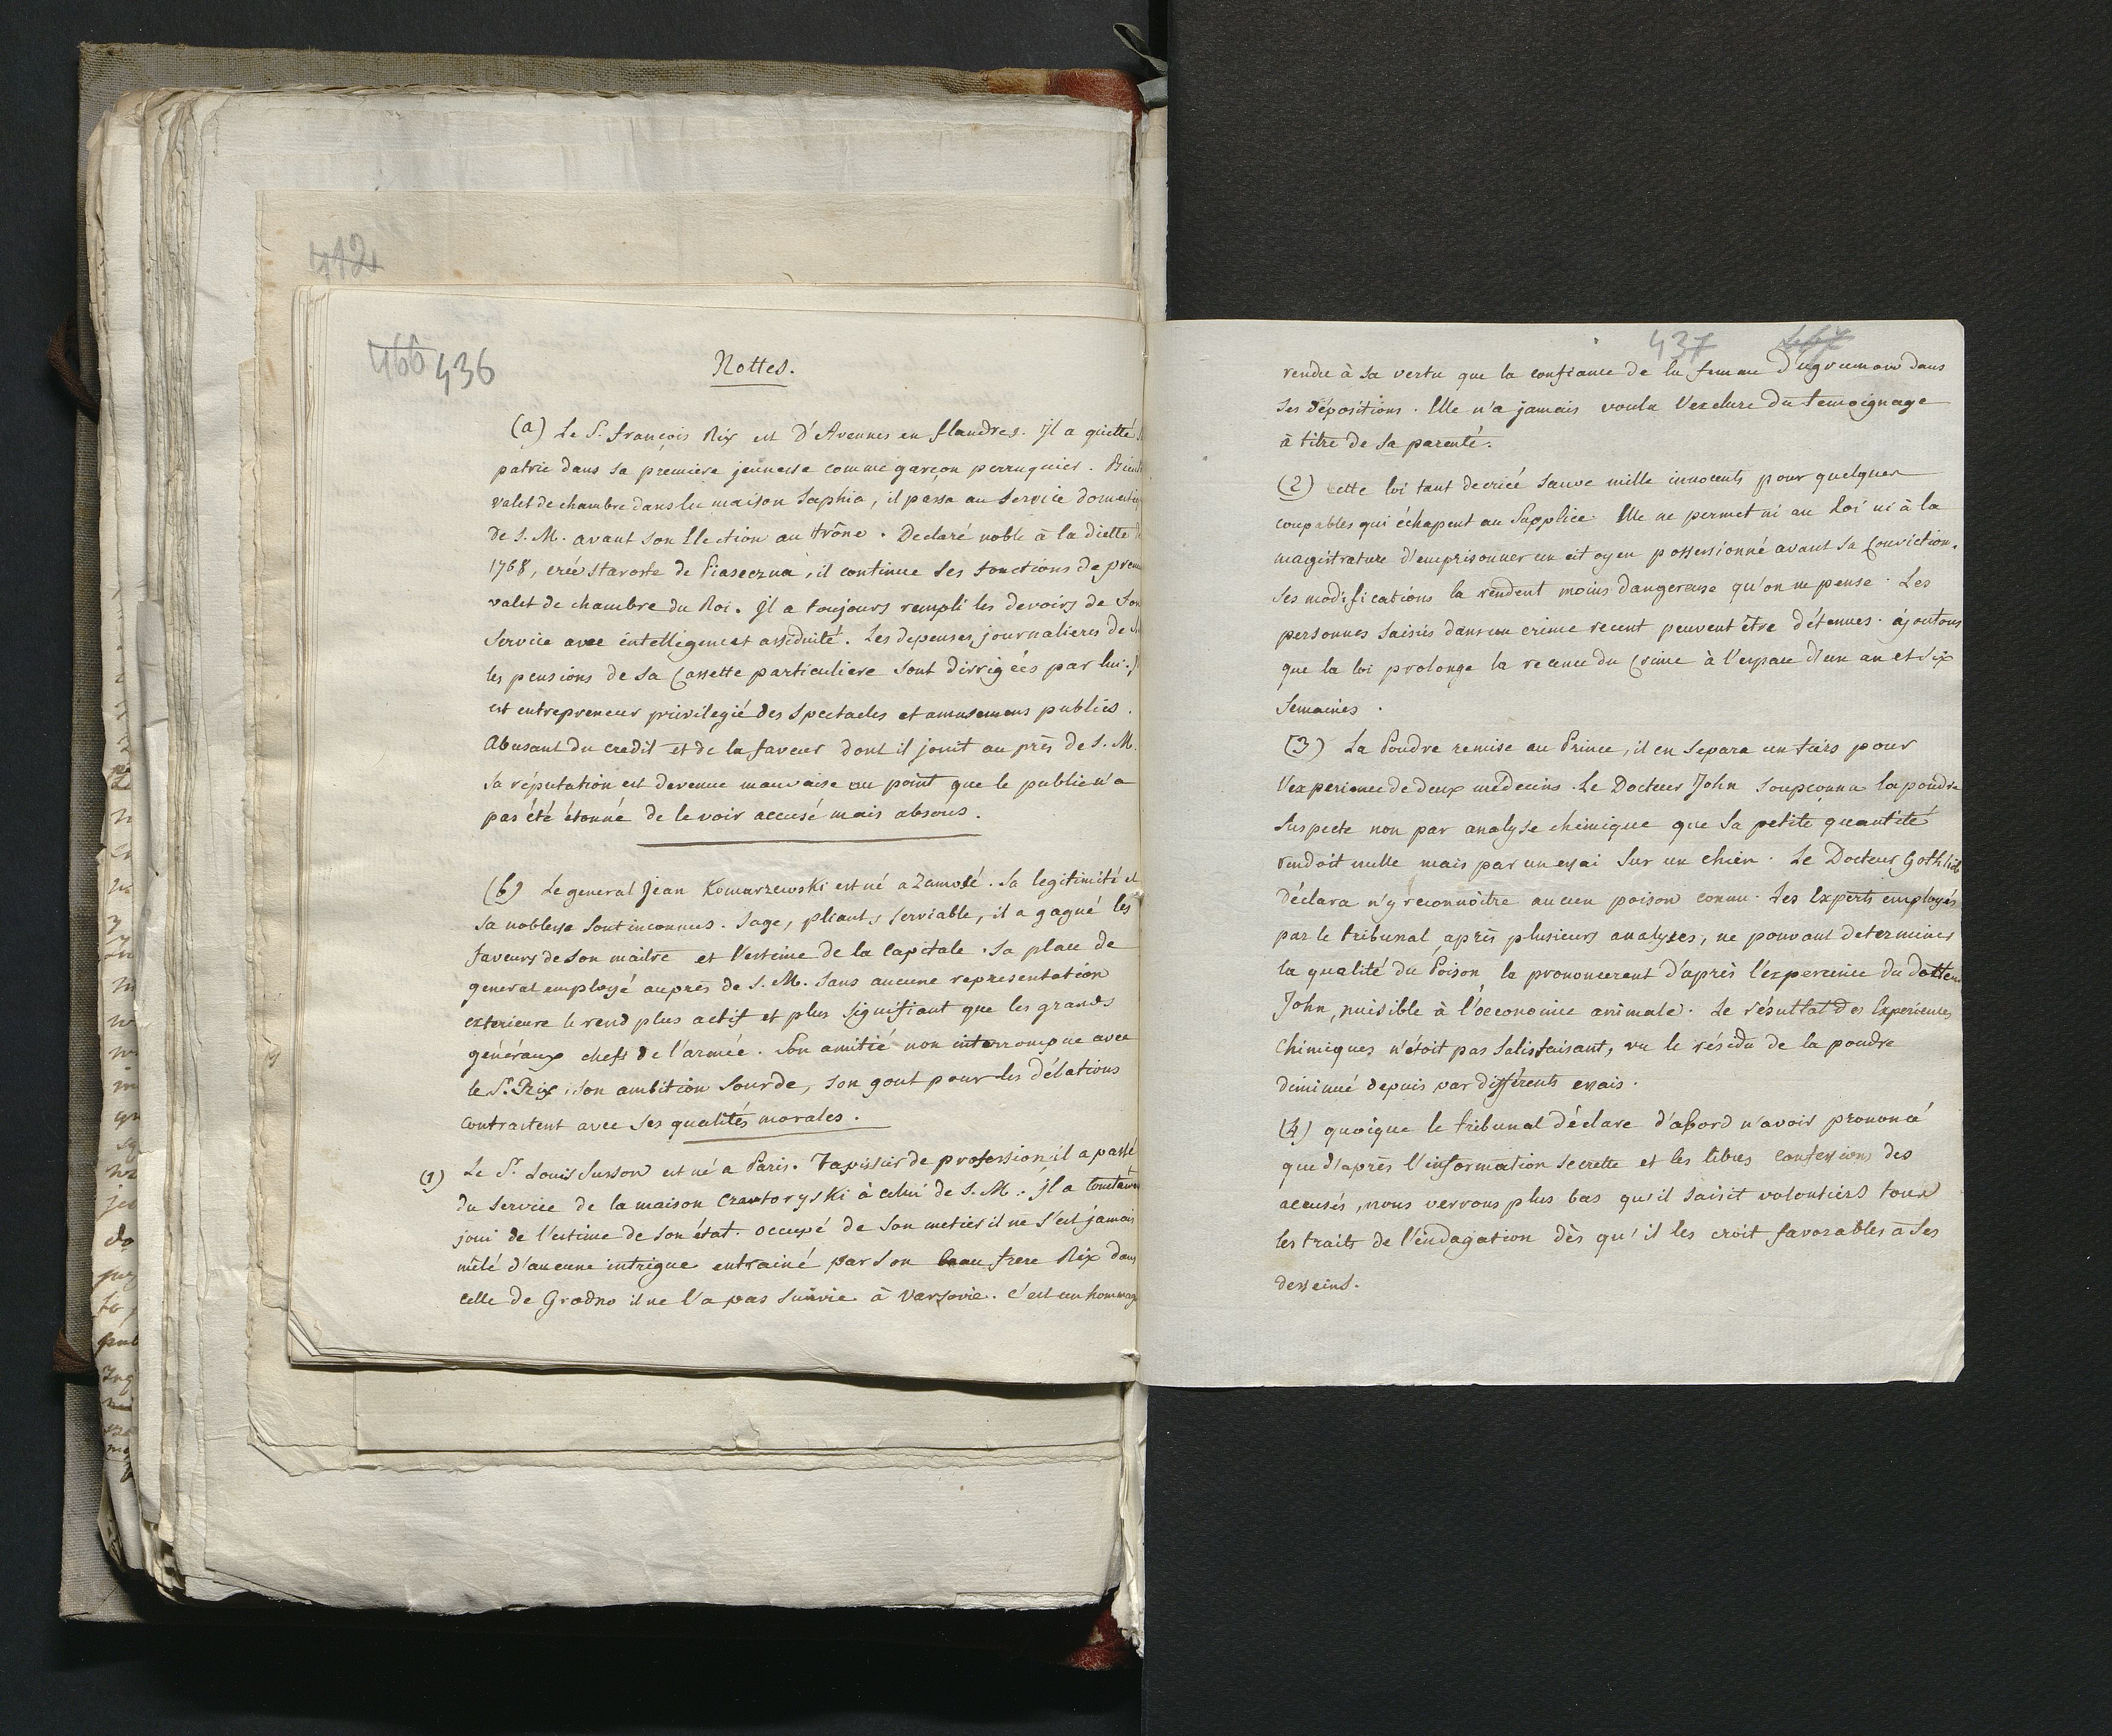 412
466 436
Nottes.
(a) Le S. françois Rix est D'Avennes en flandres. Jl a quitté
patrie dans sa première jeunesse comme garçon perruquier.
valet de chambre dans la maison Saphia, il passa au service
de S. M. avant son Election au trône. Declaré noble à la diette
1768, créé staroste de Piaseczna, il continue ses fonctions de
valet de chambre du Roi. Jl a toujours rempli les devoirs de
service avec intelligence et assiduité. Les depenses journalieres de
les pensions de sa Cassette particuliere sont dirrigées par lui.
est entrepreneur privilegié des Spectacles et amusemens publics.
Abusant du credit et de la faveur dont il jouit au près de S. M.
sa réputation est devenue mauvaise au point que le public n'a
pas été étonné de le voir accusé mais absous.
(b) Le general Jean Komarzewski est né a Zamosé. Sa legitimité et
sa noblesse sont inconnues. Sage, pliant, serviable, il a gagné les
faveurs de son maitre et l'estime de la Capitale. Sa place de
general employé auprès de S. M. sans aucune representation
exterieure le rend plus actif et plus signifiant que les grands
généraux chefs de l'armée. Son amitié non interrompue avec
le Sr. Rix, son ambition sourde, son gout pour les délations
contrastent avec ses qualités morales.
(1) Le Sr. Louis Susson est né a Paris. Tapissier de profession il a passé
du service de la maison Czartoryski à celui de S. M. Jl a
joui de l'estime de son état. occupé de son metier il ne s'est jamais
mêlé d'aucune intrigue entrainé par son beau frere Rix dans
celle de Grodno il ne l'a pas suivie à Varsovie. C'est un hommage
437 467
rendu à sa vertu que la confiance de la femme D'ugrumow dans
ses dépositions. Elle n'a jamais voulu l'exclure du temoignage
à titre de sa parenté.
(2) Cette loi tant decriée sauve mille innocents pour quelques
coupables qui échapent au Supplice. Elle ne permet ni au Roi ni à la
magistrature d'emprisonner un citoyen possessionné avant sa Conviction.
Ses modifications la rendent moins dangereuse qu'on ne pense. Les
personnes saisies dans un crime recent peuvent être détenues. ajoutons
que la loi prolonge la recence du Crime à l'espace d'un an et six
Semaines.
(3) La Poudre remise au Prince, il en separa un tiers pour
l'experience de deux médecins. Le Docteur John soupçonna la poudre
suspecte non par analyse chimique que sa petite quantité
rendoit nulle mais par un essai sur un chien. Le Docteur Gothlieb
déclara n'y reconnoitre aucun poison connu. Les Experts employés
par le tribunal après plusieurs analyses, ne pouvant determiner
la qualité du Poison, la prononcerent d'après l'experience du
John, nuisible à l'oeconomie animale. Le résultat des Experiences
Chimiques n'étoit pas satisfaisant, vu le résidu de la poudre
diminué depuis par différents essais.
(4) quoique le tribunal déclare d'abord n'avoir prononcé
que d'après l'information secrette et les libres confessions des
accusés, nous verrons plus bas qu'il saisit volontiers tous
les traits de l'indagation dès qu'il les croit favorables à ses
desseins.